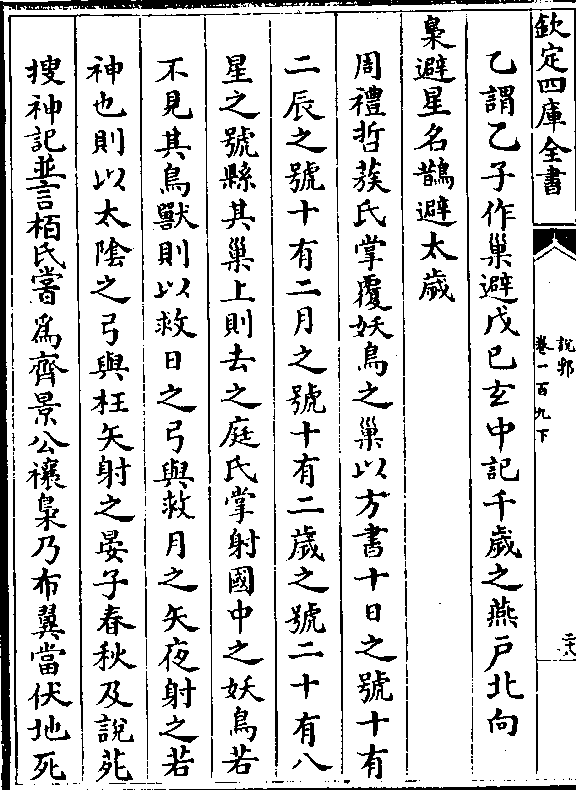 欽定四庫全書
說郛
卷一百九下
二六
乙謂乙子作巢避戊巳玄中記千歲之燕戸北向
梟避星名鵲避太歲
周禮哲蔟氏掌覆妖鳥之巢以方書十日之號十有
二辰之號十有二月之號十有二歲之號二十有八
星之號縣其巢上則去之庭氏掌射國中之妖鳥若
不見其鳥獸則以救日之弓與救月之矢夜射之若
神也則以太陰之弓與枉矢射之晏子春秋及說苑
搜神記並言栢氏嘗爲齊景公禳梟乃布翼當伏地死